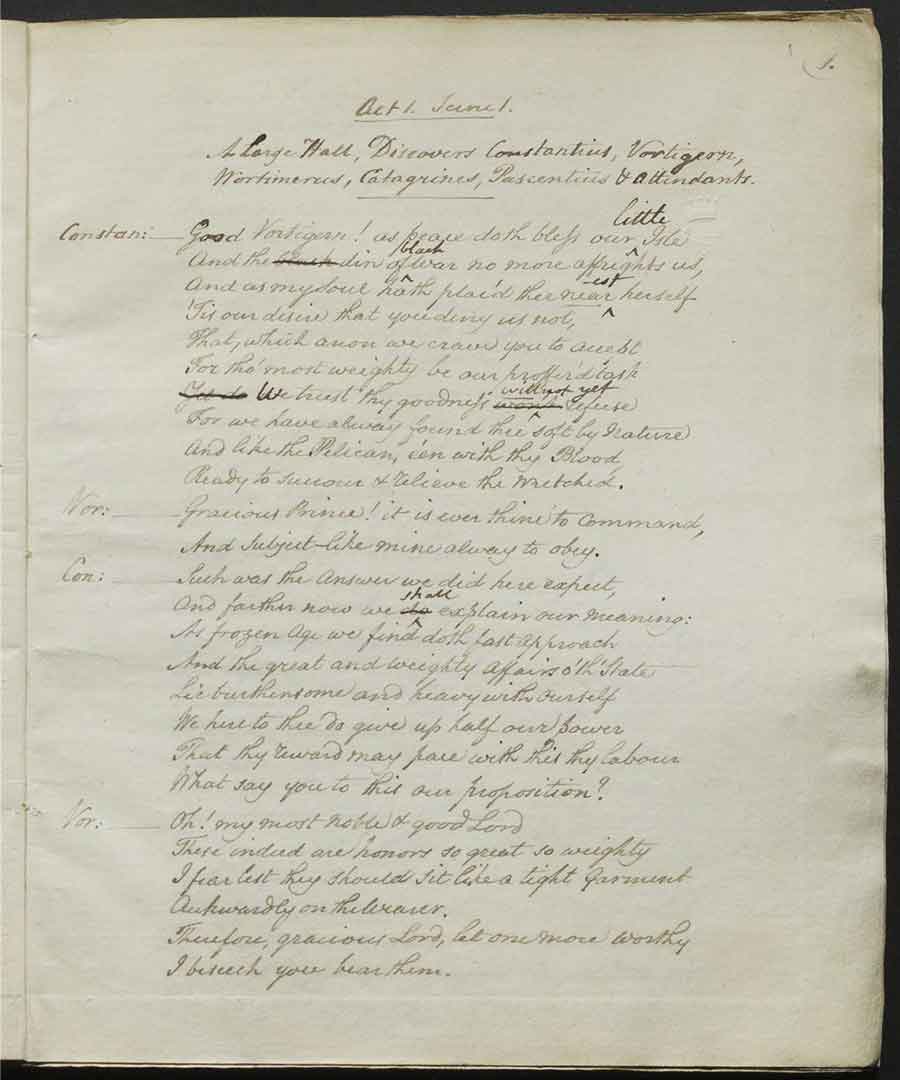 1.
Act 1. Scene 1.
A Large Hall, Discovers Constantius, Vortigern,
Wortimerus, Catagrines, Pascentius & attendants.
little
Constan: Good Vortigern! as peace doth bless our Isle
black
And the black din of War no more affrights us,
est
And as my soul hath plac'd thee near herself
'Tis our desire that you deny us not,
That, which anon we crave you to accept
For tho' most weighty be our proffer'd task
will not yet
Yet do We trust thy goodness wont refuse
For we have alway found thee soft by Nature
And like the Pelican, e'en with thy Blood
Ready to succour & relieve the Wretched.
Vor: Gracious Prince! it is ever thine to Command,
And Subject-like mine alway to obey.
Con: Such was the Answer we did here expect,
shall
And farther now we do explain our meaning:
As frozen Age we find doth fast approach
And the great and weighty affairs o'th' State
Lie burthensome and heavy with Ourself
We here to thee do give up half our power
That thy reward may pace with this thy labour
What say you to this our proposition?
Vor: Oh! my most noble & good Lord
These indeed are honors so great so weighty
I fear lest they should sit like a tight Garment
Awkwardly on the Wearer.
Therefore, gracious Lord, let one more worthy
I beseech you bear them.